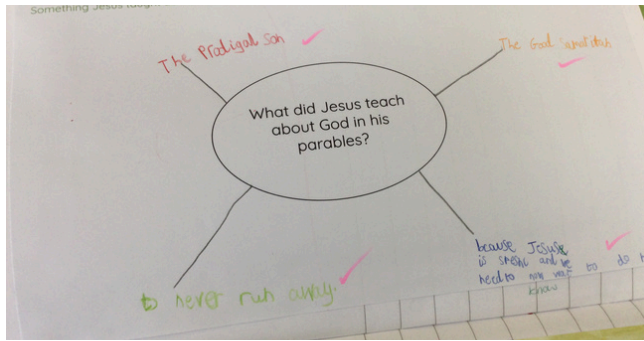 Something Jesus taug
The Prodigal Son
The Good
What did Jesus teach
about God in his
parables?
to never run away.
because Jesus
is and we
need to to do
know